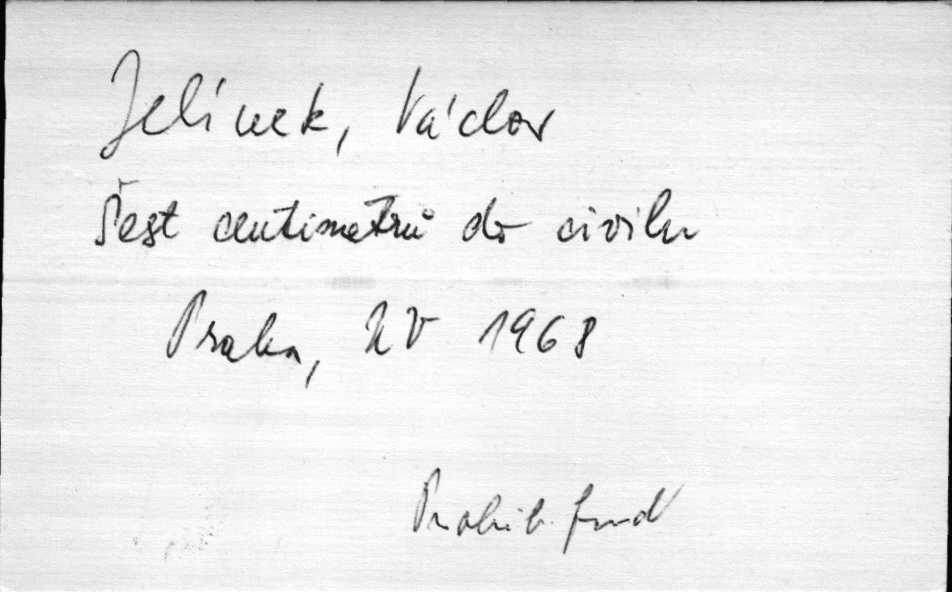 Jelínek, Václav
Šest centimetrů do civilu
Praha, NV 1968
Prohib. fond